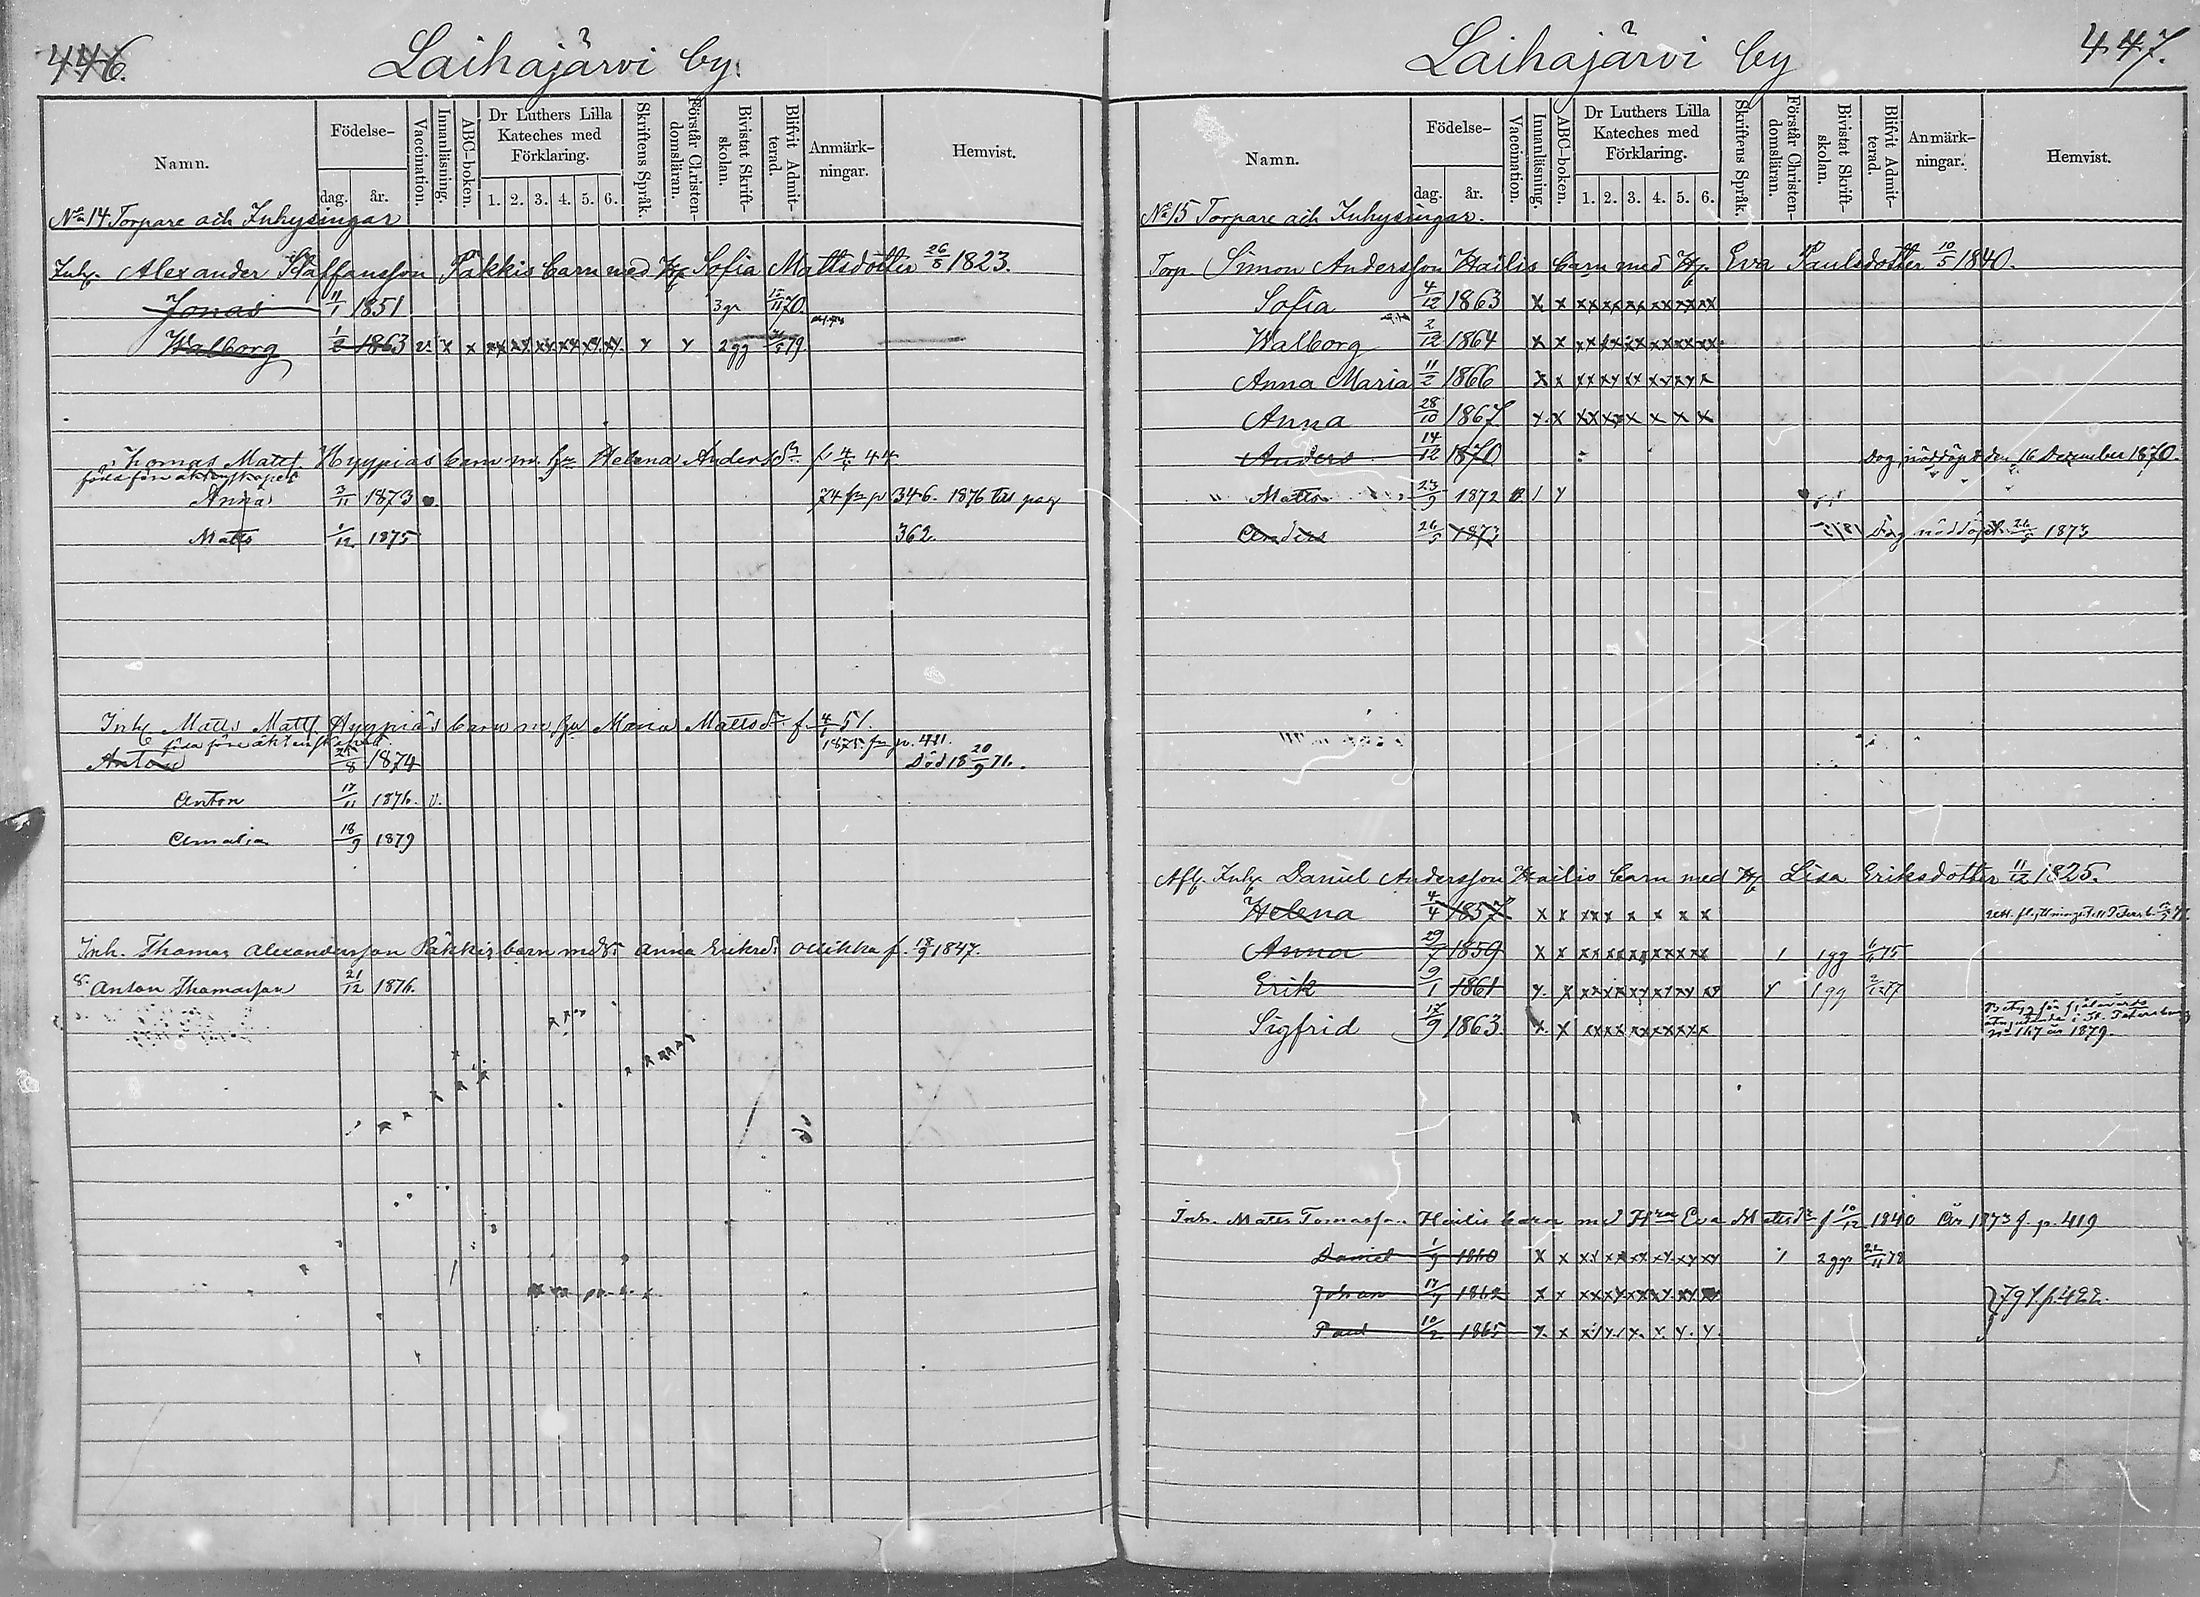 446.
Laihajärvi by.
Namn.
Födelse-
dag.
år.
Vaccination.
Innanläsning.
ABC-boken.
Dr Luthers Lilla Kateches med Förklaring.
1. 2. 3. 4. 5. 6.
Skriftens Språk.
Förstår Christendomsläran.
Bivistat Skriftskolan.
Blifvit Admitterad.
Anmärkningar.
Hemvist.
No 14 Torpare och Inhysingar
Inh. Alexander Staffansson Päkkis barn med H. Sofia Mattsdotter 26/8 1823.
Jonas 11/1 1851 3 gr 15/11 70.
Walborg 1/2 1863 v. x x xx xx xx xx xx xx y y 2 gg 79
Thomas Matts. Hyypiäs barn m. hu Helena Andersdr f 44
föda före äktenskapet
Anna 3/11 1873 74 fr p 346. 1876 till pag
Matts 1/12 1875 362
Inh. Matts Matts. Hyypiäs barn m hu Maria Mattsdr f. 51.
föda före äktenskapet 1875 fr p. 411.
Anton 25/8 1874 Död 18 20/9 71.
Anton 17/11 1876. v.
Amalia 18/9 1879
Inh. Thomas Alexandersson Päkkis barn med Anna Eriksdr Ollikka f. 18/9 1847.
Anton Thomasson 21/12 1876.
447.
Laihajärvi by
Namn.
Födelse-
dag.
år.
Vaccination.
Innanläsning.
ABC-boken.
Dr Luthers Lilla Kateches med Förklaring.
1. 2. 3. 4. 5. 6.
Skriftens Språk.
Förstår Christendomsläran.
Bivistat Skriftskolan.
Blifvit Admitterad.
Anmärkningar.
Hemvist.
No 15 Torpare och Inhysingar.
Torp. Simon Andersson Hailis barn med H. Eva Paulsdotter 10/5 1840.
Sofia 4/12 1863 x x xx xx xx xx xx xx
Walborg 2/12 1864 x x xx xx xx xx xx xx
Anna Maria 11/2 1866 x x xx xx xx xx xx x
Anna 28/10 1867 x x xx xx x x x x
Anders 14/12 1870 Dog nöddöpt den 16 December 1870.
" Matts 23/9 1872
Anders 26/5 1873 Dog nöddöpt 26/5 1873
Afl. Inh. Daniel Andersson Hailis barn med H. Lisa Eriksdotter 11/12 1825.
Helena 4/4 1857 x x xx x x x x x
Anna 29/7 1859 x x xx xx xx xx xx xx 1 1 gg 75
Erik 9/1 1861 y. x xx xx xy xx xy xy y 1 gg 77
Sigfrid 17/9 1863. x. x xx xx xx xx xx xx No 167 år 1879.
Inh. Matts Tomasson Hailis barn med Hru Eva Mattsdr f 10/12 1840 År 1873 f. p. 419
Daniel 1/9 1860 x x 1 2 gr 22/11 78
Johan 17/7 1862 x x 79 t. p. 422.
Paul 10/2 1865 y. x